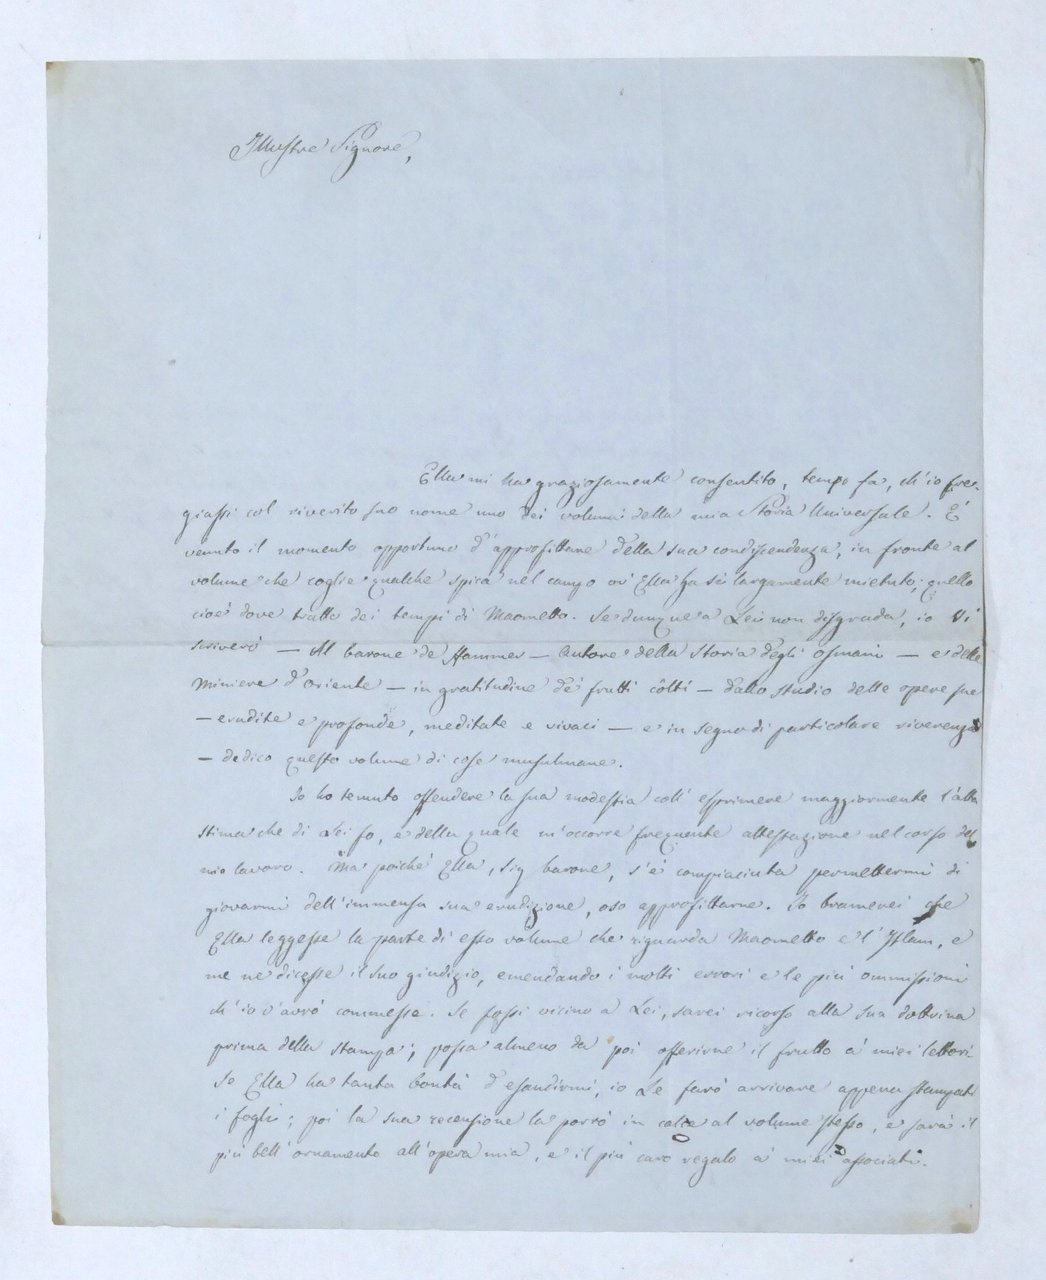 Illustre Signore,
Ella mi ha graziosamente consentito, tempo fa, ch'io fre-
giassi col riverito suo nome uno dei volumi della mia Storia Universale. È
venuto il momento opportuno d'approfittare della sua condiscendenza, in fronte al
volume che coglie qualche spica nel campo ov' Ella ha sì largamente mietuto; quello
cioè dove tratto dei tempi di Maometto. Se dunque a Lei non disgrada, io vi
scriverò — Al barone de Hammer — Autore della Storia degli Osmani — e delle
Miniere d'Oriente — in gratitudine de' frutti côlti — dallo studio delle opere sue
— erudite e profonde, meditate e vivaci — e in segno di particolare riverenza
— dedico questo volume di cose musulmane.
Io ho temuto offendere la sua modestia coll' esprimere maggiormente l'alta
stima che di Lei fo, e della quale m'occorre frequente attestazione nel corso del
mio lavoro. Ma poiché Ella, sig barone, s'è compiaciuta permettermi di
giovarmi dell'immensa sua erudizione, oso approfittarne. Io bramerei che
Ella leggesse la parte di esso volume che riguarda Maometto e l' Islam, e
me ne dicesse il suo giudizio, emendando i molti errori e le più ommissioni
ch'io v'avrò commesse. Se fossi vicino a Lei, sarei ricorso alla sua dottrina
prima della stampa; possa almeno da poi offerirne il frutto a' miei lettori
Se Ella ha tanta bontà d'esaudirmi, io Le farò arrivare appena stampati
i fogli; poi la sua recensione la porrò in calce al volume stesso, e sarà il
più bell' ornamento all'opera mia, e il più caro regalo a' miei associati.